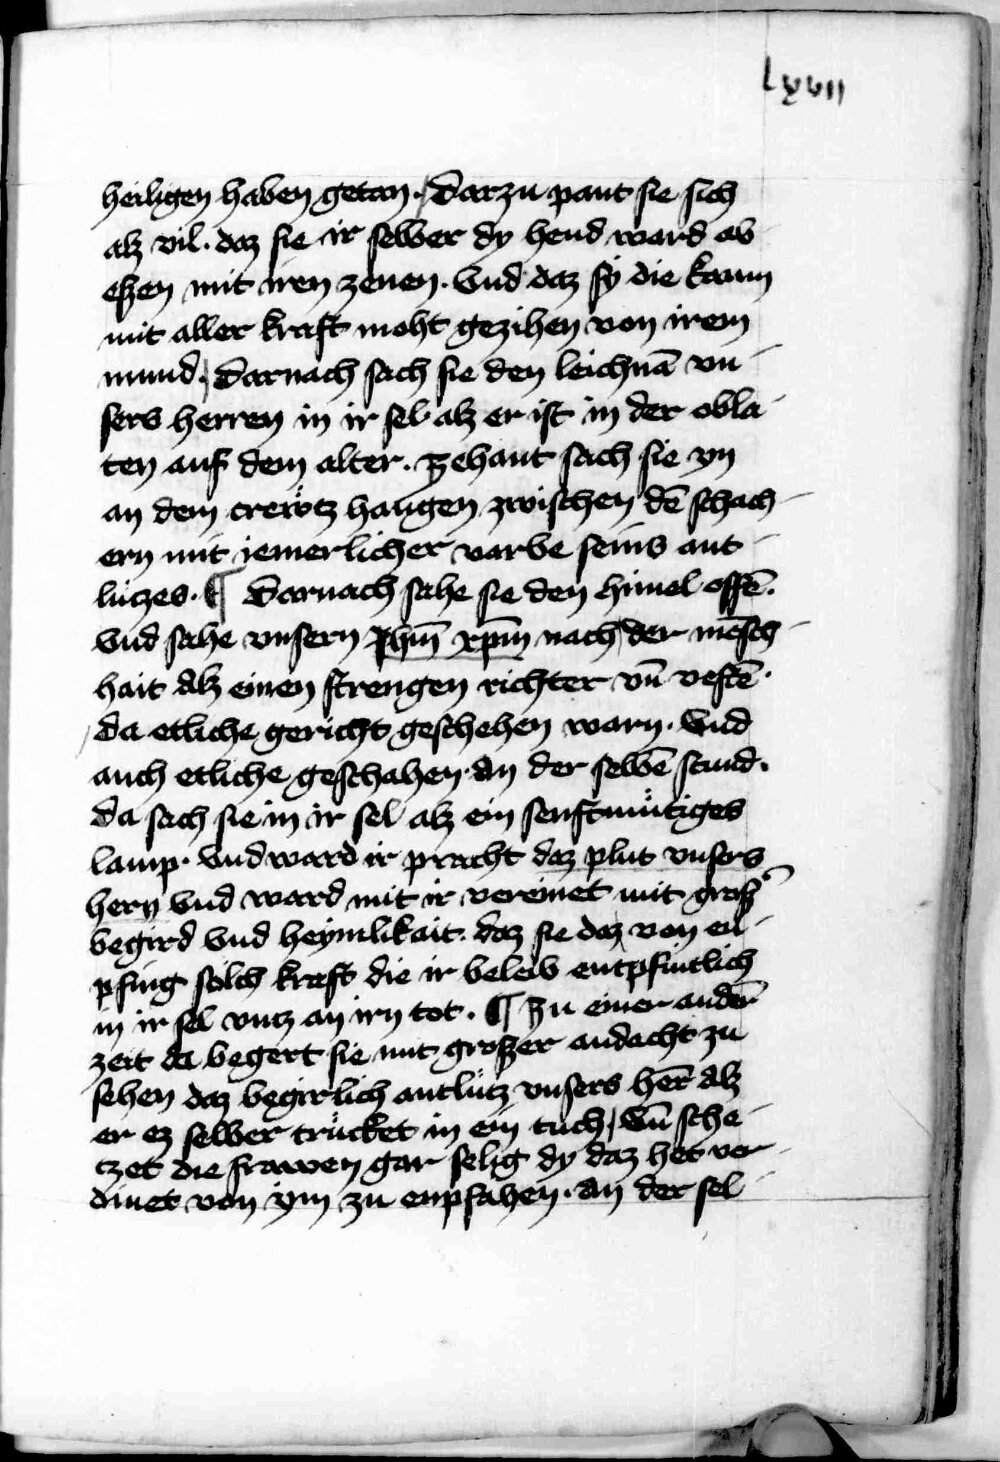 lxvii
heiligen haben getan. Darzu pant sie sich
alz vil. daz sie ir selber dy hend ward ab
eßen mit iren zenen. Vnd daz sy die kaum
mit aller kraft moht gezihen von irem
mund. Darnach sach sie den leichnā vn
sers herren in ir sel alz er ist in der obla
ten auf dem alter. zehant sach sie yn
an dem crewtz hangen zwischen dē schach
ern mit iemerlicher varbe seins ant
lützes. ¶ Darnach sahe sie den himel offē.
Vnd sahe vnsern jhm̄ xp̄m nach der mēsch
hait alz einen strengen richter vn̄ vestē.
da etliche gericht geschehen warn. Vnd
auch etliche geschahen an der selbē stund.
da sach sie in ir sel alz ein senftmütiges
lamp. Vnd ward ir pracht daz plut vnsers
hern Vnd ward mit ir vereinet mit groß᷑
begird Vnd heymlikait. daz sie daz von en
pfing sölch kraft die ir beleib entpfintlich
in ir sel vntz an irn tot. ¶ Zu einer andern̄
zeit da begert sie mit großer andacht zu
sehen daz begirlich antlütz vnsers her̄ alz
er ez selber trücket in ein tuch, Vn̄ sche
tzet die frawen gar selig dy daz het ver
dinet von ym zu enpfahen. an der sel